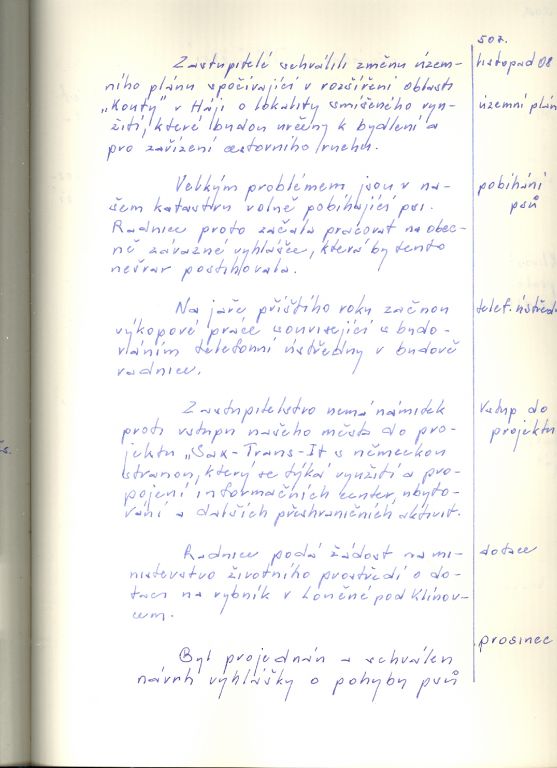 507.
Zastupitelé schválili změnu územ-
ního plánu spočívající v rozšíření oblasti
„Kouty" v Háji o lokality smíšeného vyu-
žití, které budou určeny k bydlení a
pro zařízení cestovního ruchu.
listopad 08
územní plán
Velkým problémem jsou v na-
šem katastru volně pobíhající psi.
Radnice proto začala pracovat na obec-
ně závazné vyhlášce, která by tento
nešvar postihovala.
pobíhání
psů
Na jaře příštího roku začnou
výkopové práce související s budo-
váním telefonní ústředny v budově
radnice.
telef. ústřed
Zastupitelstvo nemá námitek
proti vstupu našeho města do pro-
jektu „Sax-Trans-It s německou
stranou, který se týká využití a pro-
pojení informačních center, ubyto-
vání a dalších přeshraničních aktivit.
Vstup do
projektu
Radnice podá žádost na mi-
nisterstvo životního prostředí o do-
taci na rybník v Loučné pod Klínov-
cem.
dotace
prosinec
Byl projednán a schválen
návrh vyhlášky o pohybu psů